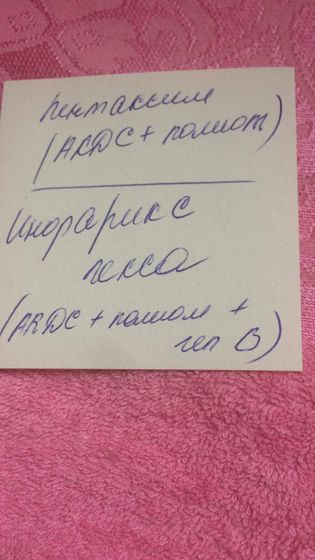 пентаксим
(АКДС + полиом)
Инфарикс
гекса
(АКДС + полиом +
геп В)